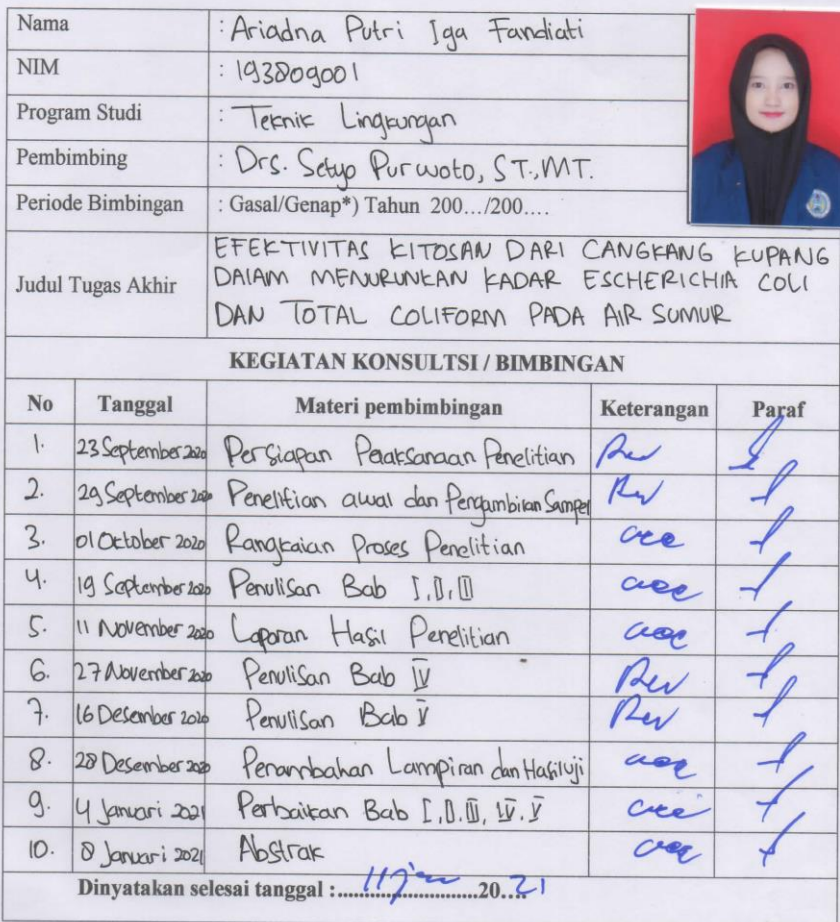 Nama : Ariadna Putri Iga Fandiati
NIM : 193809001
Program Studi : Teknik Lingkungan
Pembimbing : Drs. Setyo Purwoto, ST., MT.
Periode Bimbingan : Gasal/Genap*) Tahun 200.../200....
Judul Tugas Akhir
EFEKTIVITAS KITOSAN DARI CANGKANG KUPANG
DALAM MENURUNKAN KADAR ESCHERICHIA COLI
DAN TOTAL COLIFORM PADA AIR SUMUR
KEGIATAN KONSULTSI / BIMBINGAN
No Tanggal Materi pembimbingan Keterangan Paraf
1. 23 September 2020 Persiapan Pelaksanaan Penelitian Rev
2. 29 September 2020 Penelitian awal dan Pengambilan Sampel Rev
3. 01 Oktober 2020 Rangkaian Proses Penelitian acc
4. 19 September 2020 Penulisan Bab I, II, III acc
5. 11 November 2020 Laporan Hasil Penelitian acc
6. 27 November 2020 Penulisan Bab IV Rev
7. 16 Desember 2020 Penulisan Bab V Rev
8. 28 Desember 2020 Penambahan Lampiran dan Hasil uji acc
9. 4 Januari 2021 Perbaikan Bab I, II, III, IV, V acc
10. 8 Januari 2021 Abstrak acc
Dinyatakan selesai tanggal : 11 jan 2021